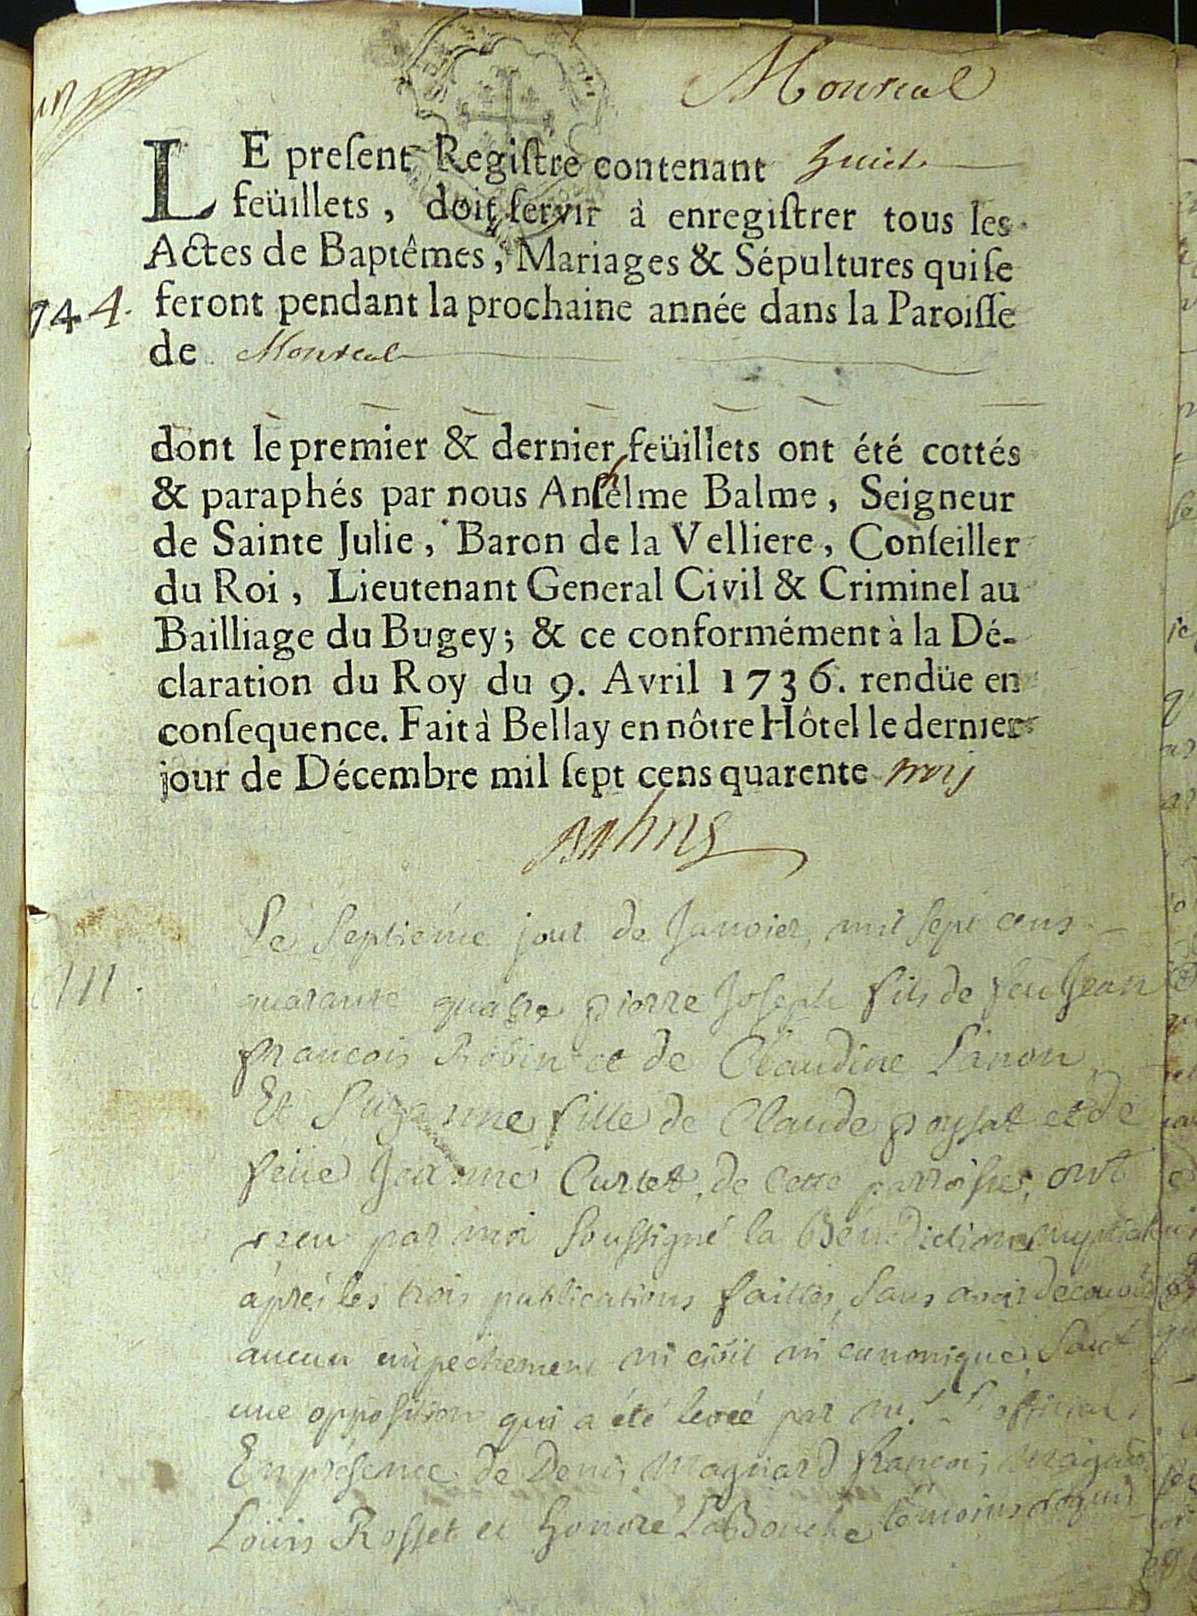 un
Monreal
LE preſent Regiſtre contenant huict
feüillets, doit ſervir à enregiſtrer tous les
Actes de Baptêmes, Mariages & Sépultures qui ſe
744. feront pendant la prochaine année dans la Paroiſſe
de Monreal
dont le premier & dernier feüillets ont été cottés
& paraphés par nous Anthelme Balme, Seigneur
de Sainte Julie, Baron de la Velliere, Conſeiller
du Roi, Lieutenant General Civil & Criminel au
Bailliage du Bugey; & ce conformément à la Dé-
claration du Roy du 9. Avril 1736. rendüe en
conſequence. Fait à Bellay en nôtre Hôtel le dernier
jour de Décembre mil ſept cens quarente trois
Balme
Le septiéme jour de Janvier, mil sept cens
M. quarante quatre pierre Joseph fils de feu Jean
francois Robin et de Claudine Linon
Et Suzanne fille de Claude poysat et de
feüe Jeanne Curtet, de cette parroisse, ont
reçu par moi soussigné la Bénédiction nuptiale
aprés les trois publications faittes, sans avoir découvert
aucun empechement ni civil ni canonique, sauf
une opposition qui a été levée par mr. l'official
En présence de Denis Magnard francois
Loüis Rosset et honoré LaBouche témoins requis